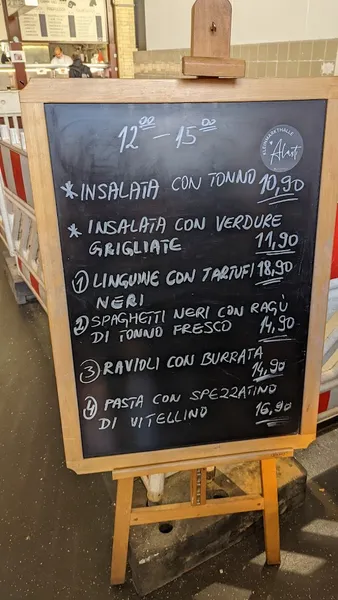 12⁰⁰ - 15⁰⁰
KLEINMARKTHALLE
* INSALATA CON TONNO 10,90
* INSALATA CON VERDURE
GRIGLIATE 11,90
① LINGUINE CON TARTUFI 18,90
NERI
② SPAGHETTI NERI CON RAGÙ
DI TONNO FRESCO 14,90
③ RAVIOLI CON BURRATA
14,90
④ PASTA CON SPEZZATINO
DI VITELLINO 16,90